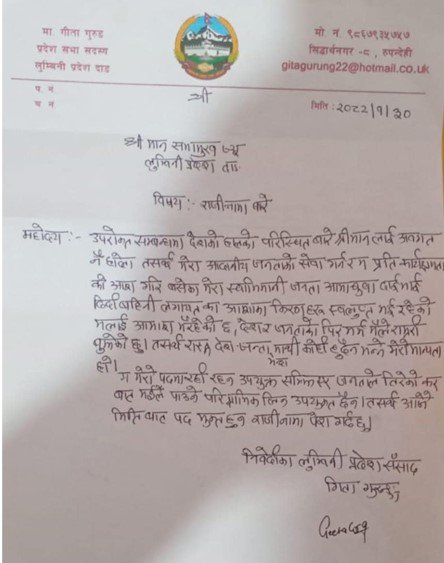 मा. गीता गुरुङ
प्रदेश सभा सदस्य
लुम्बिनी प्रदेश दाङ
मो नं. ९८६७९३५७५७
सिद्धार्थनगर -८, रुपन्देही
gitagurung22@hotmail.co.uk
प. नं
च नं
श्री
मिति: २०८२/५/३०
श्री मान सभामुख ज्यू
लुम्बिनी प्रदेश दाङ
विषय :- राजीनामा बारे
महोदय :- उपरोक्त सम्बन्धमा देशको हालको परिस्थित बारे श्रीमान लाई अवगत
नै होला तसर्थ मेरा आदरणीय जनताको सेवा गर्न म प्रति
की आशा गरि बसेका मेरा स्वाभिमानी जनता आमाबुवा दाई भाई
दिदी बहिनी लगायत का आशाका किरण हरु भई रहेको
मलाई आभाष भैरहेको छ, देश र जनताको पिर मर्म मैले राम्ररी
बुझेको छु। तसर्थ राष्ट्र देश जनता भन्दा माथी कोही हुदैन भन्ने मेरो मान्यता
हो।
म मेरो पदमा रही रहन उपयुक्त जनताले तिरेको कर
बाट मईले पाउने पारिश्रमिक लिन उपयुक्त छैन। तसर्थ आजैको
मिति बाट पद मुक्त हुन राजीनामा पेश गर्दछु।
निवेदिका लुम्बिनी प्रदेश साँसद
गिता गुरुङ